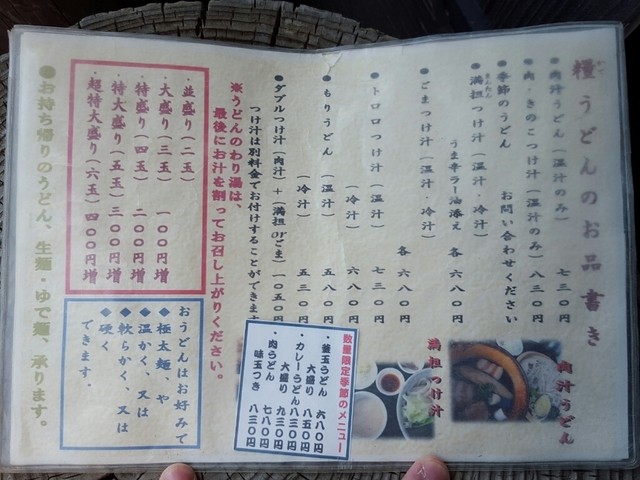 糧うどんのお品書き
●肉汁うどん(温汁のみ) 七三〇円
●肉・きのこつけ汁(温汁のみ) 八三〇円
●季節のうどん お問い合わせください
●満担つけ汁(温汁・冷汁)
うま辛ラー油添え 各六八〇円
●ごまつけ汁(温汁・冷汁)
各六八〇円
●トロロつけ汁(温汁) 七三〇円
(冷汁) 六八〇円
●もりうどん(温汁) 五八〇円
(冷汁) 五三〇円
●ダブルつけ汁(肉汁)+(満担orごま)一〇五〇円
つけ汁は別料金でお付けすることができます
※うどんのわり湯は、
最後にお汁を割ってお召し上がりください。
・並盛り(二玉)
・大盛り(三玉) 一〇〇円増
・特盛り(四玉) 二〇〇円増
・特大盛り(五玉) 三〇〇円増
・超特大盛り(六玉) 四〇〇円増
おうどんはお好みで
◆極太麺、や
◆温かく、又は
◆軟らかく、又は
◆硬く
できます。
●お持ち帰りのうどん、生麺・ゆで麺、承ります。
数量限定季節のメニュー
・釜玉うどん 六八〇円
大盛り 八五〇円
・カレーうどん 八三〇円
大盛り 九三〇円
・肉うどん 七八〇円
味玉つき 八三〇円
満担つけ汁
肉汁うどん